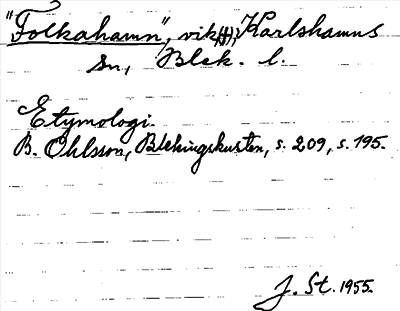 "Folkahamn", vik(†), Karlshamns
sn, Blek. l.
Etymologi.
B. Ohlsson, Blekingskusten, s. 209, s. 195.
J. St. 1955.